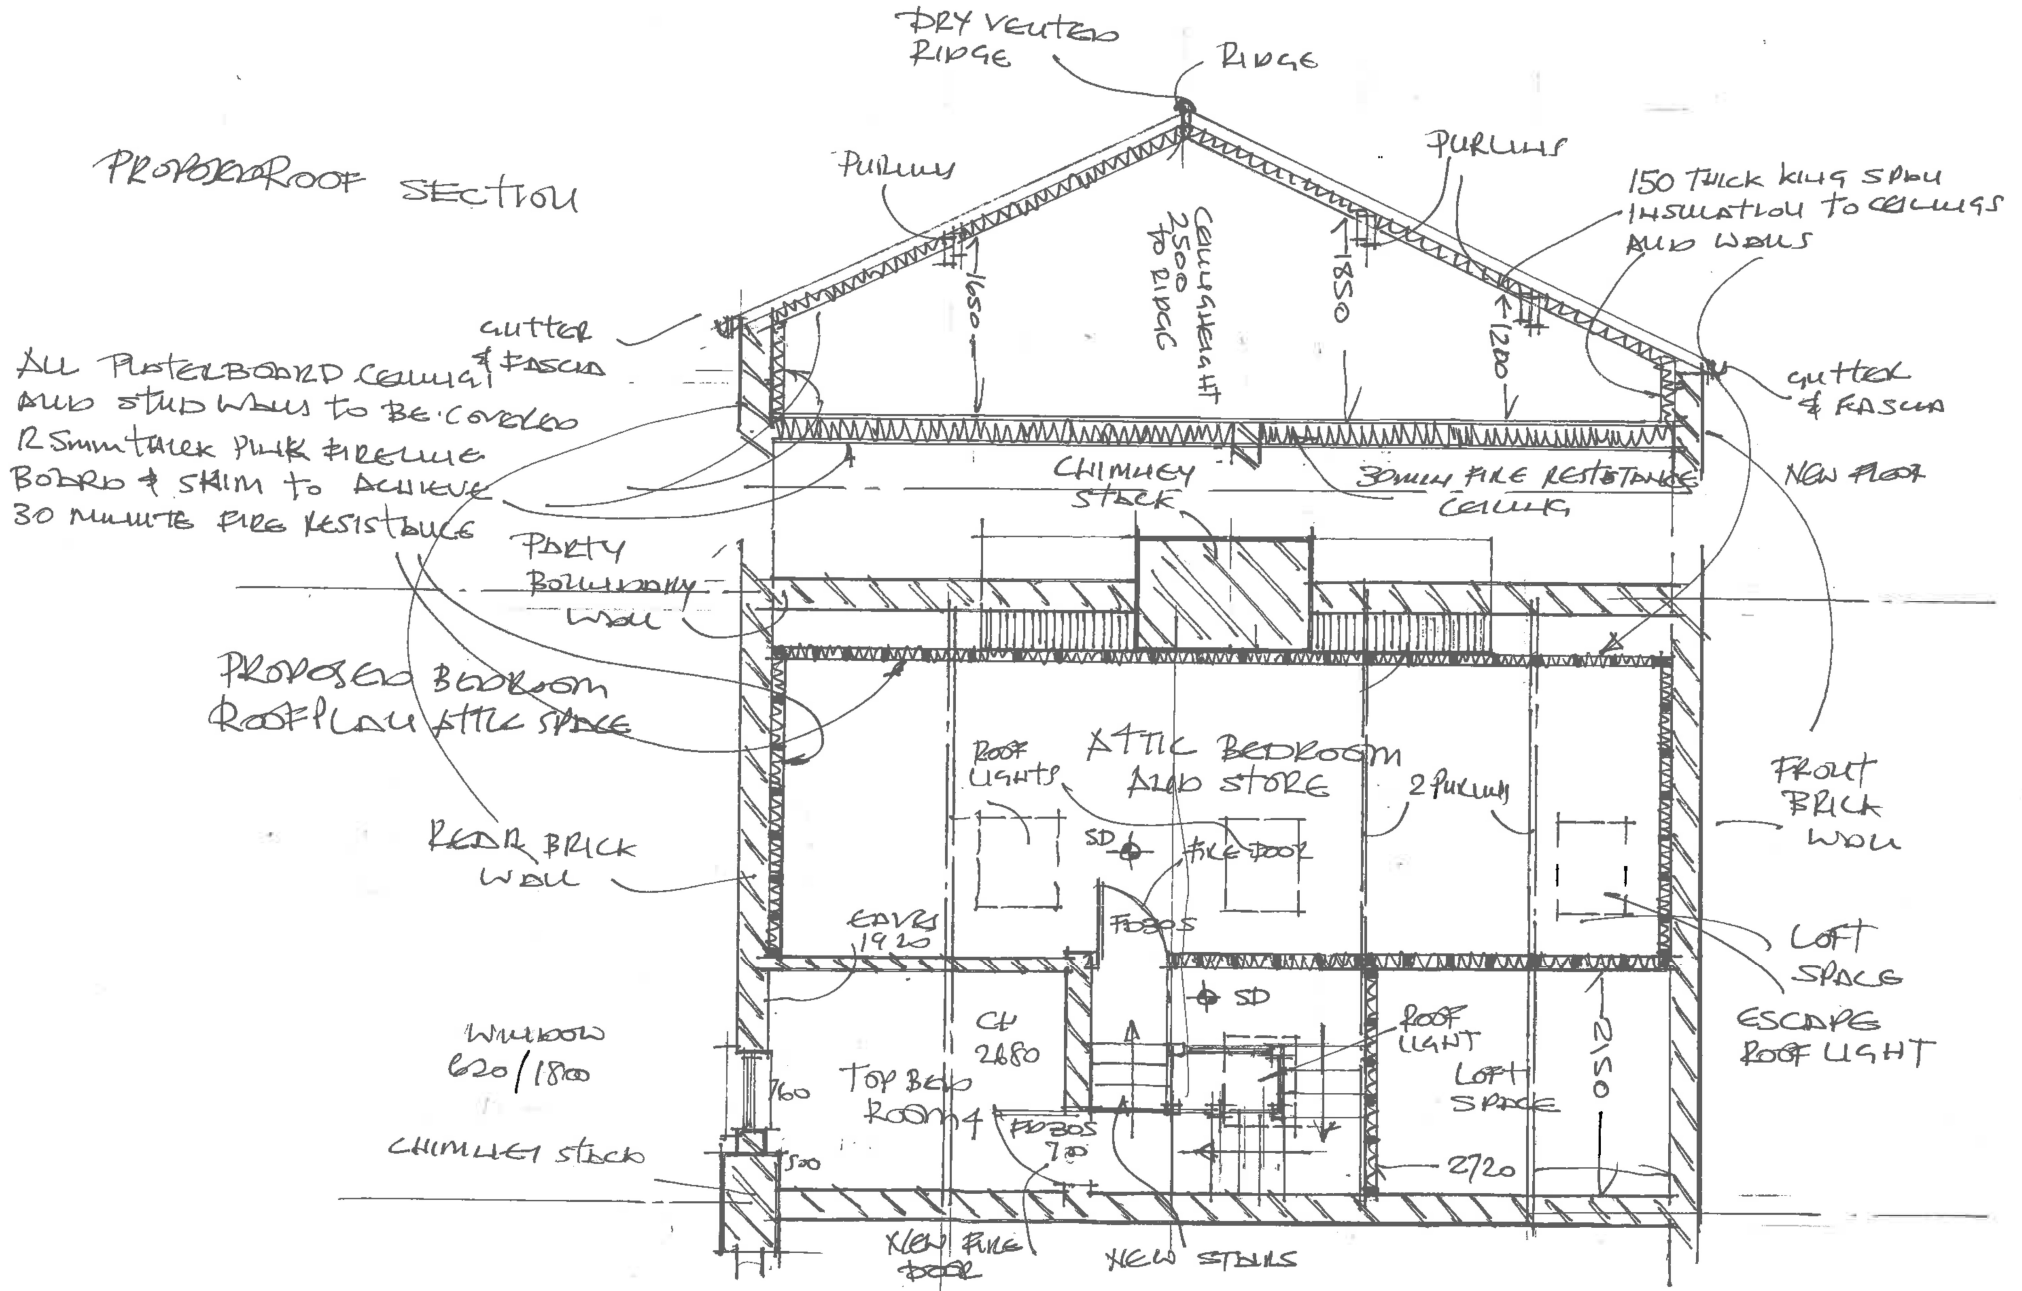 DRY VENTED
RIDGE
RIDGE
PROPOSED ROOF SECTION
PURLINS
PURLINS
150 THICK KING SPAN
INSULATION TO CEILINGS
AND WALLS
CEILING HEIGHT
2500
TO RIDGE
1650
1850
1200
GUTTER
& FASCIA
GUTTER
& FASCIA
ALL PLATERBOARD CEILING
AND STUD WALLS TO BE COVERED
12.5mm THICK PINK FIRELINE
BOARD & SKIM TO ACHIEVE
30 MINUTE FIRE RESISTANCE
CHIMNEY
STACK
30min FIRE RESISTANCE
CEILING
NEW FLOOR
PARTY
BOUNDARY
WALL
PROPOSED BEDROOM
ROOF PLAN ATTIC SPACE
ROOF
LIGHTS
ATTIC BEDROOM
AND STORE
2 PURLINS
FRONT
BRICK
WALL
REAR BRICK
WALL
SD
FIRE DOOR
EAVES
1920
FD30S
LOFT
SPACE
ESCAPE
ROOF LIGHT
SD
WINDOW
620/1800
CH
2680
ROOF
LIGHT
760
TOP BED
ROOM 4
LOFT
SPACE
2150
FD30S
CHIMNEY STACK
500
2720
NEW FIRE
DOOR
NEW STAIRS